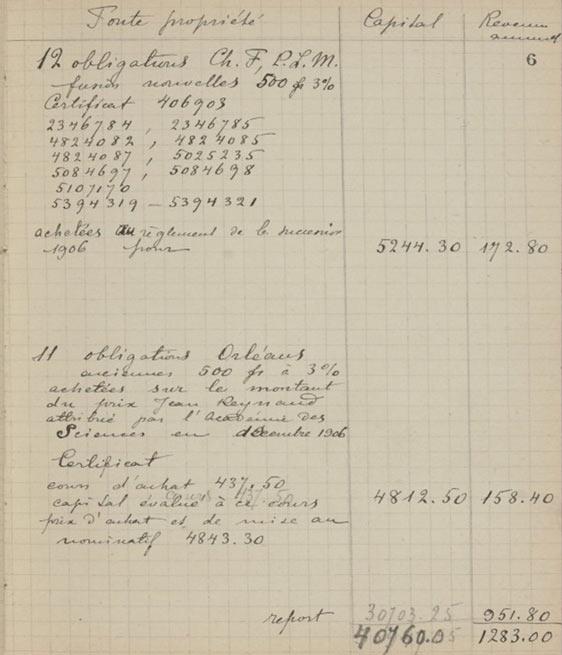 Toute propriété Capital Revenu annuel
6
12 obligations Ch. F, P.L.M.
fusion nouvelles 500 fr 3%
Certificat 406903
2346784, 2346785
4824082, 4824085
4824087, 5025235
5084697, 5084698
5107170
5394319 – 5394321
achetées au règlement de la succession
1906 pour 5244.30 172.80
11 obligations Orléans
anciennes 500 fr à 3%
achetées sur le montant
du prix Jean Reynaud
attribué par l'Académie des
Sciences en décembre 1906
Certificat
cours d'achat 437.50
capital évalué à ce cours 4812.50 158.40
prix d'achat et de mise au
nominatif 4843.30
report 30703.25 951.80
40760.05 1283.00